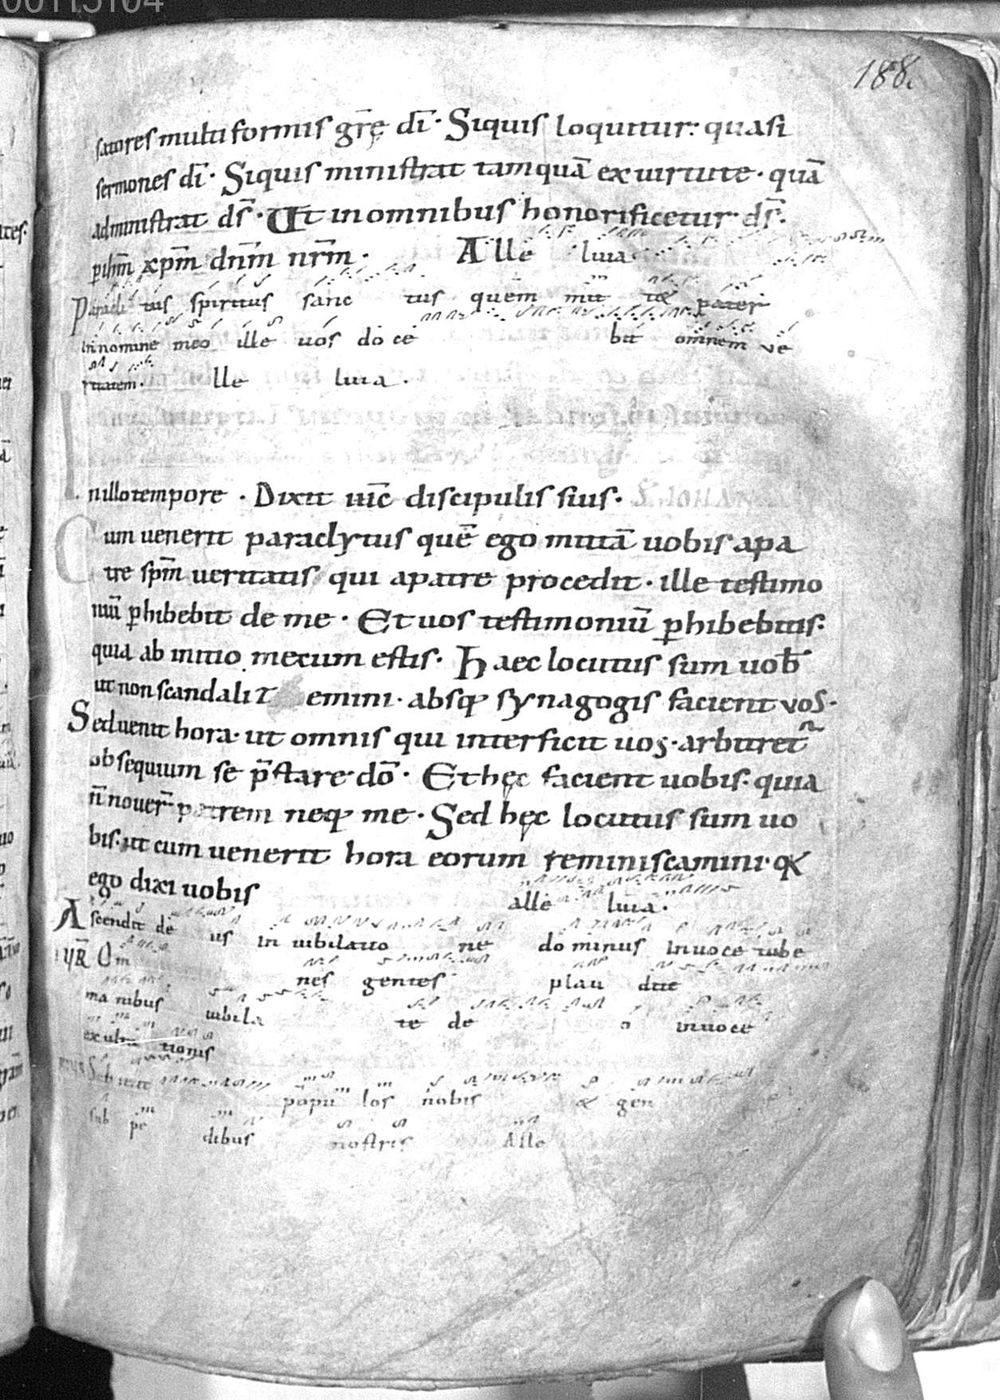 188.
satores multiformis gr̄ę dī· Siquis loquitur: quasi
sermones dī· Siquis ministrat tamquā exuirtute· quā
administrat ds̄· Ut inomnibus honorificetur ds̄·
p ihm̄ xp̄m dn̄m nr̄m· Alle luia·
Paracli tus spiritus sanc tus quem mit t& pater
In nomine meo ille uos do cē bit omnem ve
ritatem· lle luia·
nillotempore · Dixit iħc discipulis suis·
S. IOHAN
Cum uenerit paraclytus quē ego mittā uobis apa
tre sp̄m ueritatis qui apatre procedit· ille testimo
niū p̄hibebit de me· Et uos testimoniū p̄hibebitis·
quia ab initio mecum estis· Haec locutus sum uob̄
ut non scandaliz emini· absq; synagogis facient vos·
Sed uenit hora· ut omnis qui interficit uos· arbitret̄
obsequium se p̄stare dō· Et hęc facient uobis· quia
n̄ nouer̄ patrem neq; me· Sed hęc locutus sum uo
bis· ut cum uenerit hora eorum reminiscamini· qa
ego dixi uobis alle luia·
Ascendit de us in iubilatio ne dominus in uoce tube
Om nes gentes plau dite
ma nibus iubila te de o in uoce
exulta tionis
Subiecit populos nobis & gen
sub pe dibus nostris Alle